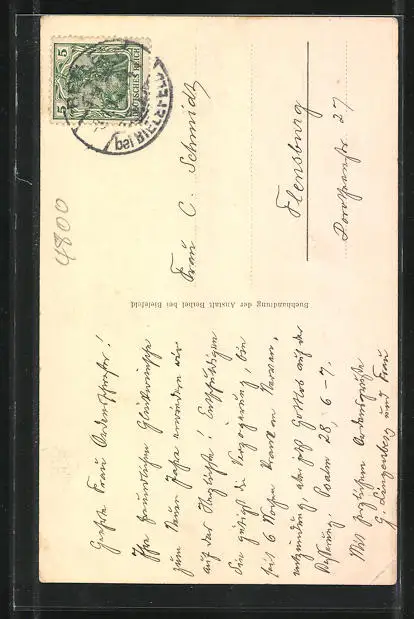 Geehrte Frau Ordensschwester!
Ihre freundlichen Glückwünsche
zum Neuen Jahre erwidern wir
auf das Herzlichste! Entschuldigen
Sie gütigst die Verzögerung, bin
seit 6 Wochen krank an Nerven-
entzündung, aber jetzt Gottlob auf der
Besserung. Psalm 28, 6-7.
Mit herzlichen Ordensgrüßen
G. Langenberg und Frau
Buchhandlung der Anstalt Bethel bei Bielefeld
5 DEUTSCHES REICH 5
Frau C. Schmidt
Flensburg
Dorotheenstr 27
4800